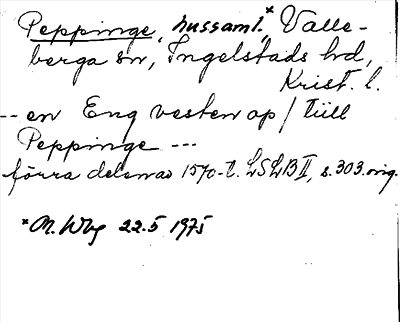 Peppinge, hussaml.* Valle-
berga sn, Ingelstads hd,
Krist. l.
-- en Eng vesten op / till
Peppinge ---
förra delen av 1570-t. LSLB II, s. 303. orig.
* M. Wbg 22.5 1975